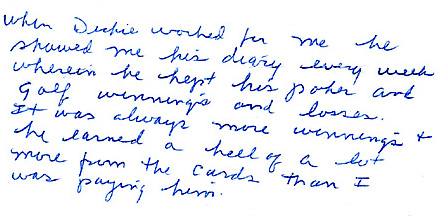 When Dickie worked for me he
showed me his diary every week
wherein he kept his poker and
Golf winnings and losses.
It was always more winnings &
he earned a hell of a lot
more from the cards than I
was paying him.